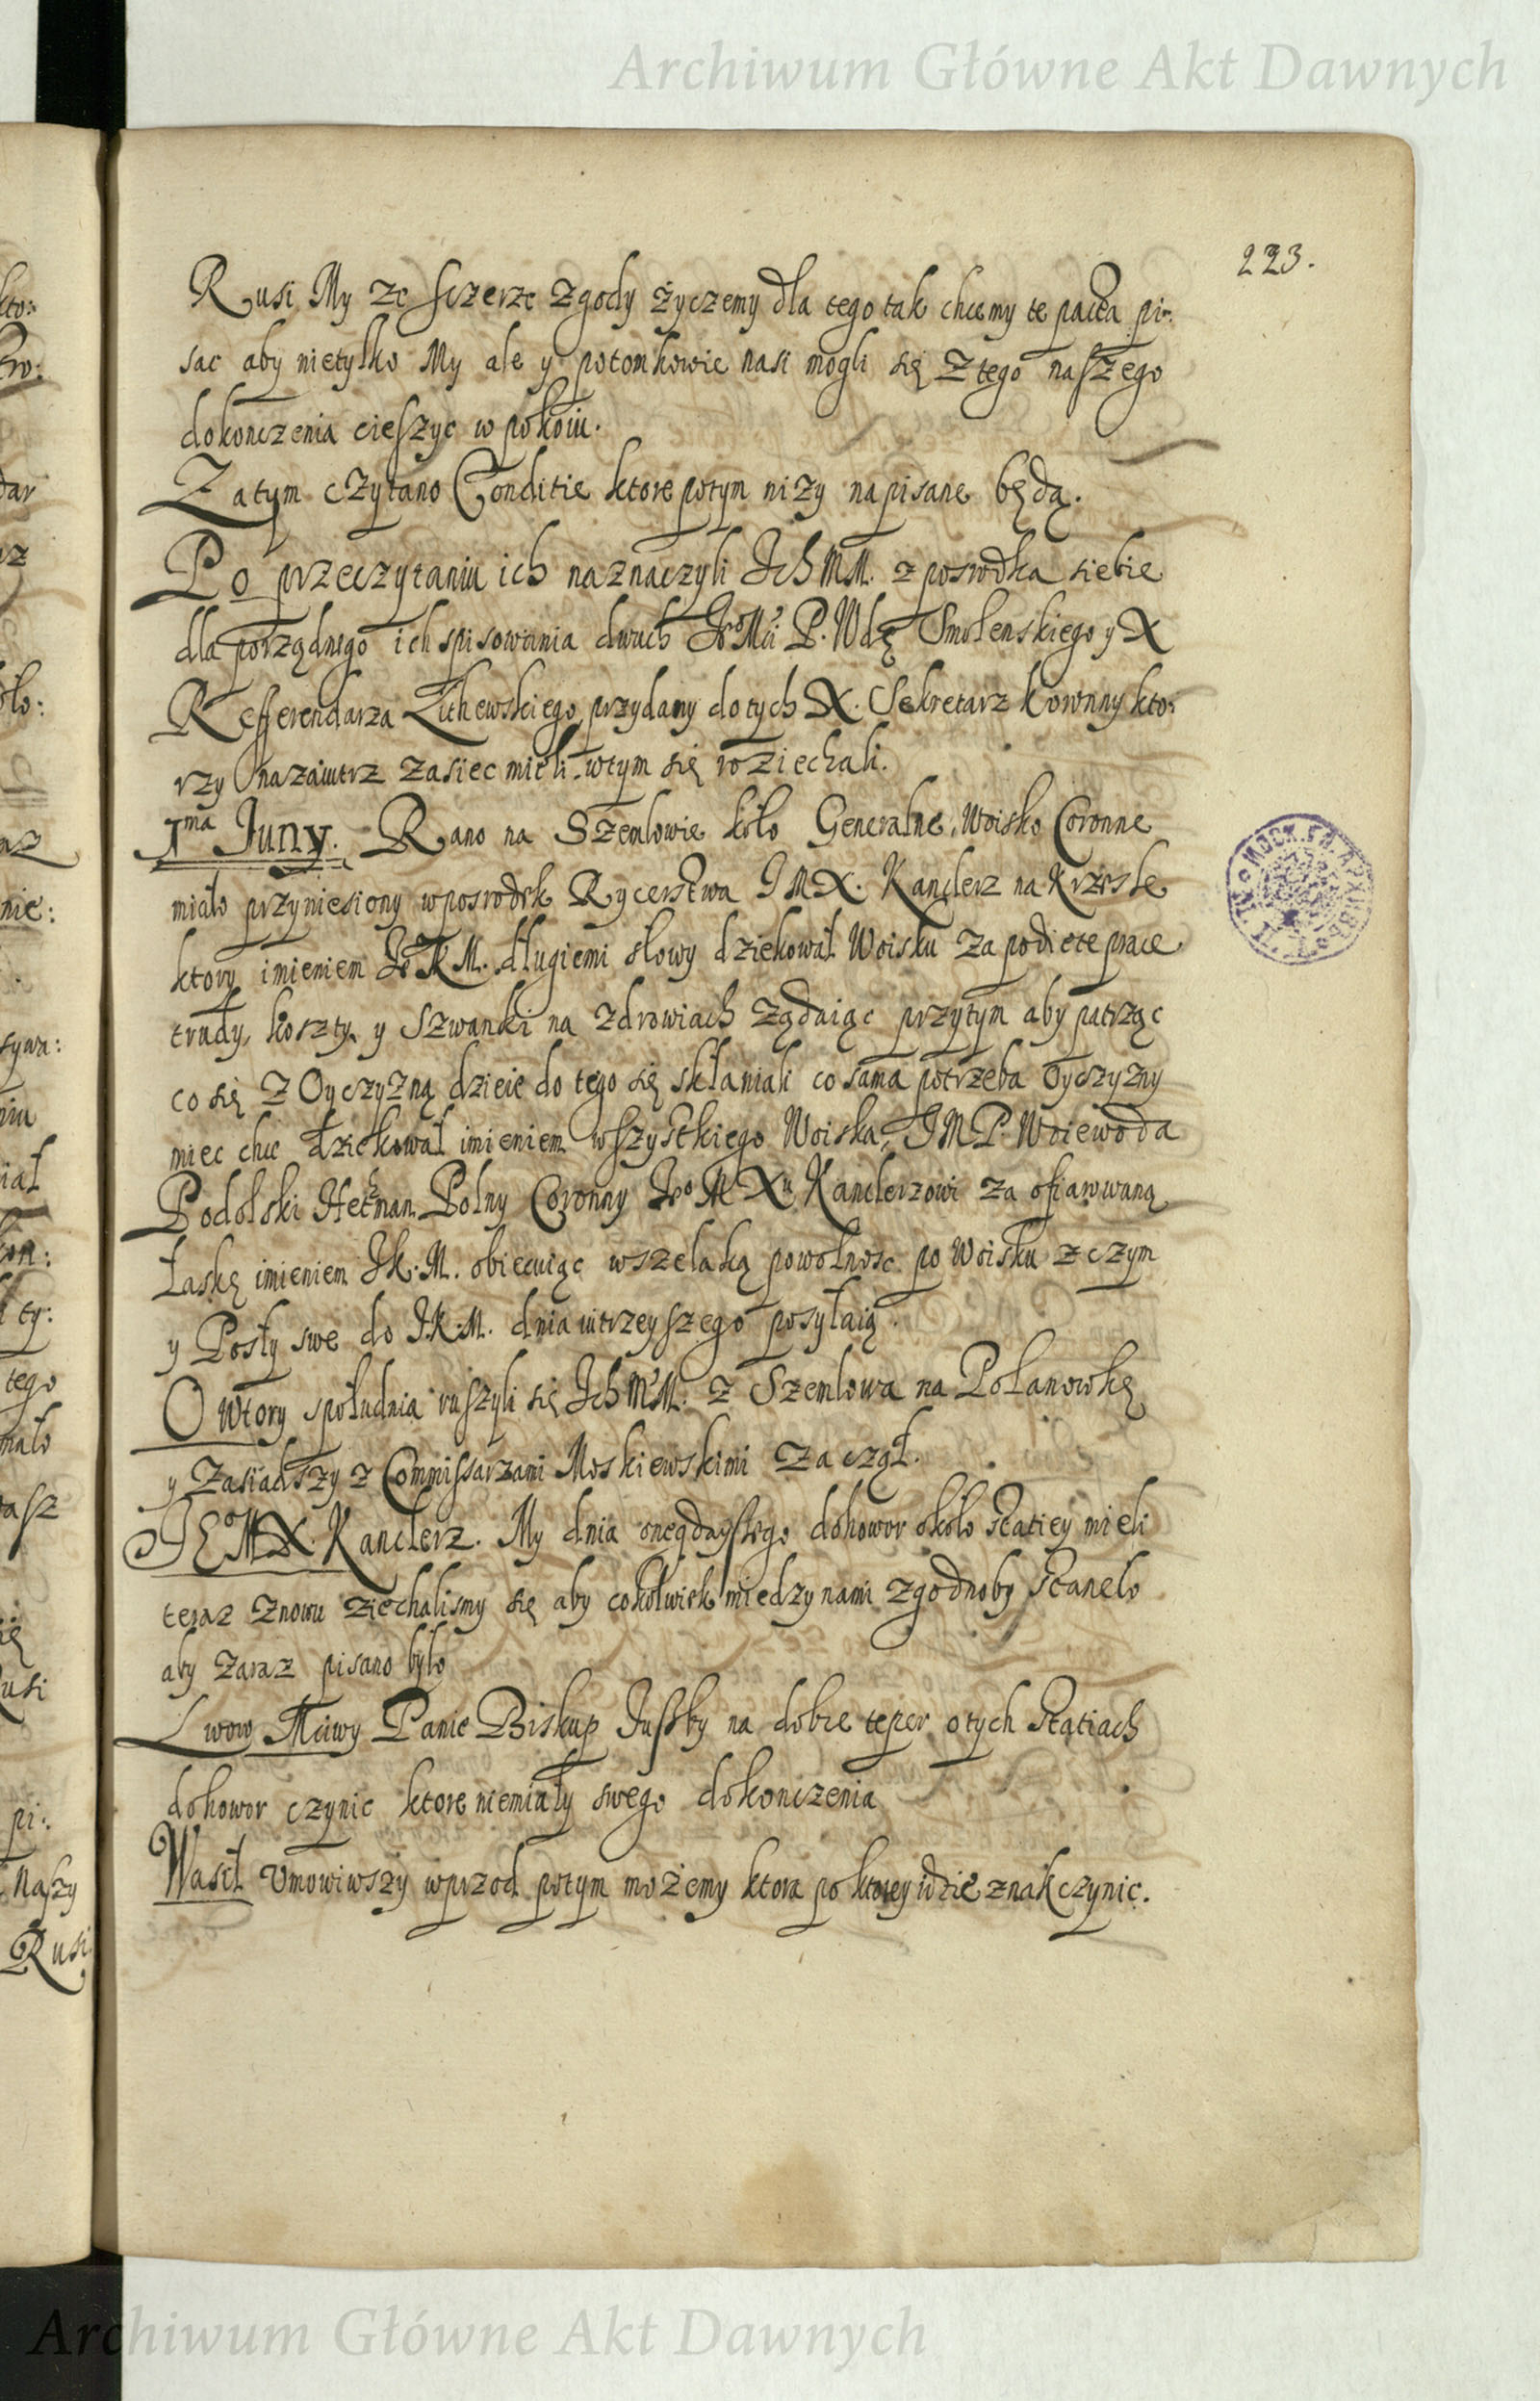 Archiwum Główne Akt Dawnych
223.
Rusi My ze sczerze zgody życzemy dla tego tak chcemy te pacta pi:
sac aby nietylko My ale y potomkowie nasi mogli się z tego naszego
dokonczenia cieszyc w pokoiu.
Zatym czytano Conditie ktore potym niży napisane będą.
Po przeczytaniu ich naznaczyli Ich MM. z posrodka siebie
dla porządnego ich spisowania dwuch P. Wdę Smolenskiego y X
Refferendarza Lithewskiego, przydany do tych X. Sekretarz koronny kto:
rzy nazaiutrz zasiec mieli. wtym się roziechali.
1ma Juny. Rano na Szemlowie koło Generalne, Woisko Coronne
miało przyniesiony wposrodek Rycerstwa I M X. Kanclerz na Krzesle
ktory imieniem Je K M. długiemi słowy dziekował Woisku za podiete prace
trudy, koszty, y szwanki na zdrowiach żądaiąc przytym aby patrząc
co się z Oyczyzną dzieie do tego się skłaniali co sama potrzeba Oyczyzny
miec chce dziekował imieniem wszystkiego Woiska, I M P. Woiewoda
Podolski Hetman Polny Coronny Jeo M Xu Kanclerzowi za ofiarwaną
Łaskę imieniem J K. M. obiecuiąc wszelaką powolnosc po Woisku z czym
y Posły swe do J. K. M. dnia iutrzeyszego posyłaią.
O Wtory społudnia ruszyli się Ich MM. z Szemlowa na Polanowkę
y Zasiadszy z Commissarzami Moskiewskimi zaczął.
JEo M X. Kanclerz. My dnia onegdayszego dohowor około statiey mieli
teraz znowu ziechalismy się aby cokolwiek miedzy nami zgodnoby stanelo
aby zaraz pisano było
Lwow Mciwy Panie Biskup Jussby na dobre teper o tych statiach
dohowor czynic ktore niemiały swego dokonczenia
Wasil Umowiwszy wprzod potym możemy ktora po ktorey idzie znak czynic.
Archiwum Główne Akt Dawnych